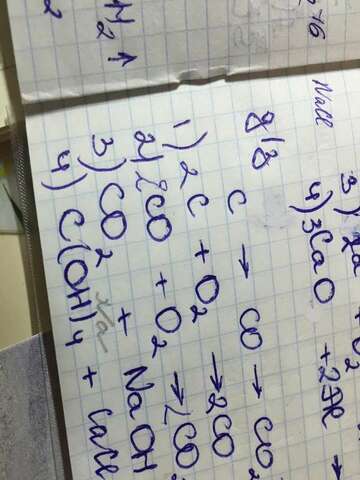 H₂↑
2
NaCl
4) 3CaO + 2Al →
д/з
C → CO → CO₂
1) 2C + O₂ → 2CO
2) 2CO + O₂ → 2CO₂
3) CO₂ + NaOH
Na
4) C(OH)₄ + CaCl